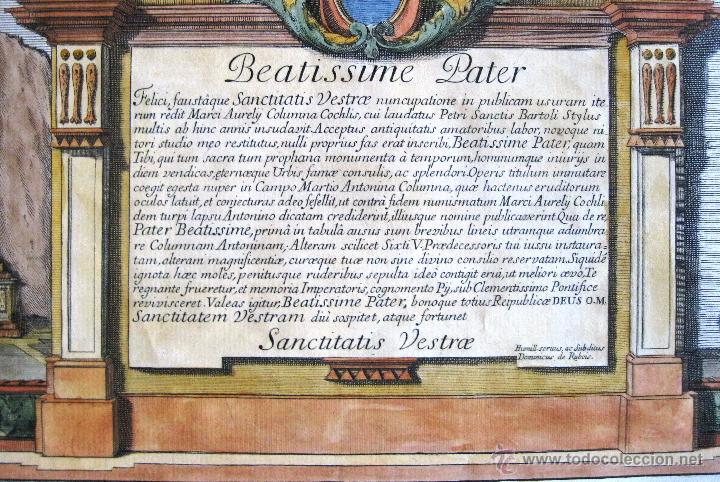 Beatissime Pater
Felici, faustâque Sanctitatis Vestræ nuncupatione in publicam usuram ite
rum redit Marci Aurely Columna Cochlis, cui laudatus Petri Sanctis Bartoli Stylus
multis ab hinc annis insudavit. Acceptus antiquitatis amatoribus labor, novoque ni
tori studio meo restitutus, nulli proprius fas erat inscribi, Beatissime Pater, quam
Tibi, qui tum sacra tum prophana monumenta à temporum, hominumque iniurys in
diem vendicas, eternæque Urbis famæ consulis, ac splendori. Operis titulum immutare
coegit egesta nuper in Campo Martio Antonina Columna, quæ hactenus eruditorum
oculos latuit, et conjecturas adeo fefellit, ut contrà fidem numismatum Marci Aurely Cochli
dem turpi lapsu Antonino dicatam crediderint, illiusque nomine publicaverint. Qua de re,
Pater Beatissime, primâ in tabulâ ausus sum brevibus lineis utramque adumbra
re Columnam Antoninam; Alteram scilicet Sixti V. Prædecessoris tui iussu instaura-
tam, alteram magnificentiæ, curæque tuæ non sine divino consilio reservatam. Siquidẽ
ignota hæc moles, penitusque ruderibus sepulta ideò contigit erui, ut meliori ævo, Te
regnante frueretur, et memoria Imperatoris, cognomento Pij, sub Clementissimo Pontifice
revivisceret. Valeas igitur, Beatissime Pater, bonoque totius Reipublicæ DEUS O.M.
Sanctitatem Vestram diù sospitet, atque fortunet
Sanctitatis Vestræ
Humill. servus, ac Subditus
Dominicus de Rubeis.
© www.todocoleccion.net